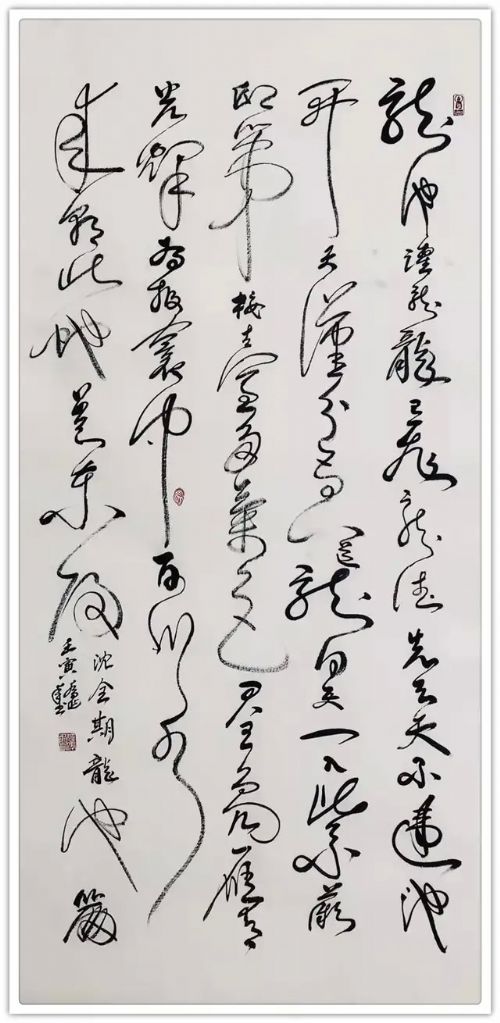 龍池躍龍龍已飛龍德先天天不違池
開天漢分黃道龍向天門入紫薇
邸第樓臺多氣色君王鳧雁有
光輝為報寰中百川水
來朝此地莫東歸
沈全期龍池篇
壬寅